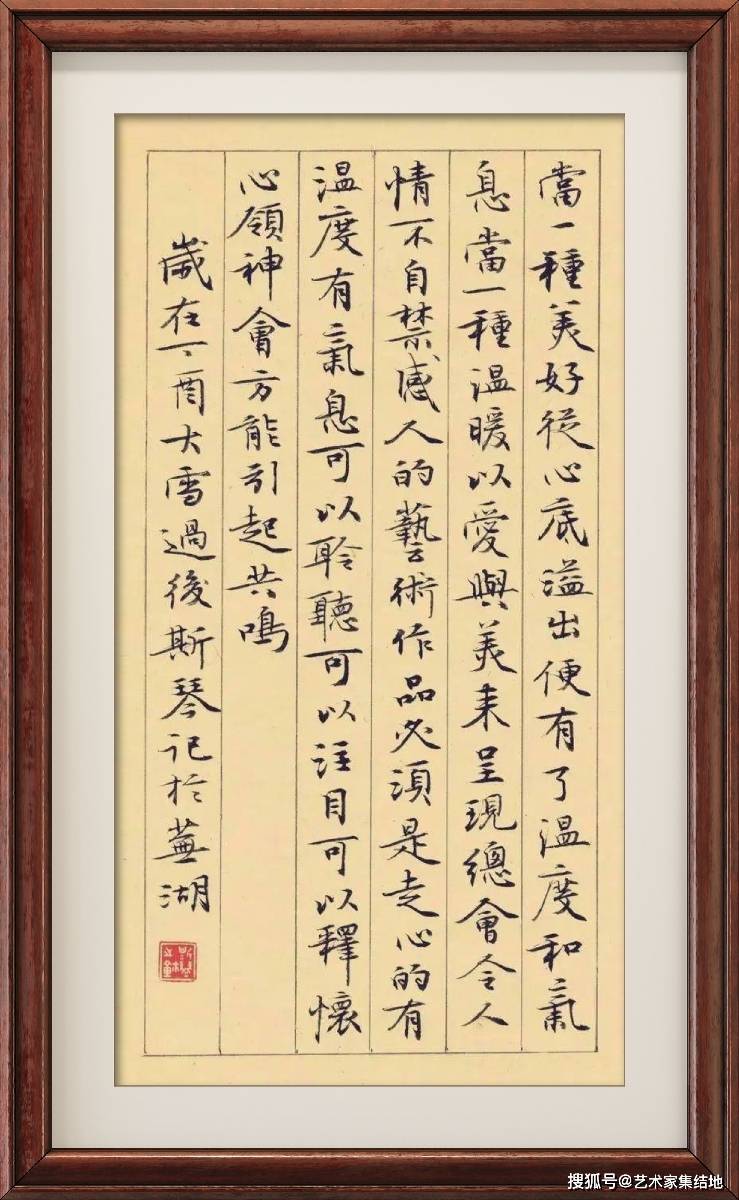 當一種美好從心底溢出便有了溫度和氣
息當一種溫暖以愛與美来呈現總會令人
情不自禁感人的藝術作品必須是走心的有
溫度有氣息可以聆聽可以注目可以釋懷
心領神會方能引起共鳴
歲在丁酉大雪過後斯琴記於蕪湖
搜狐号@艺术家集结地